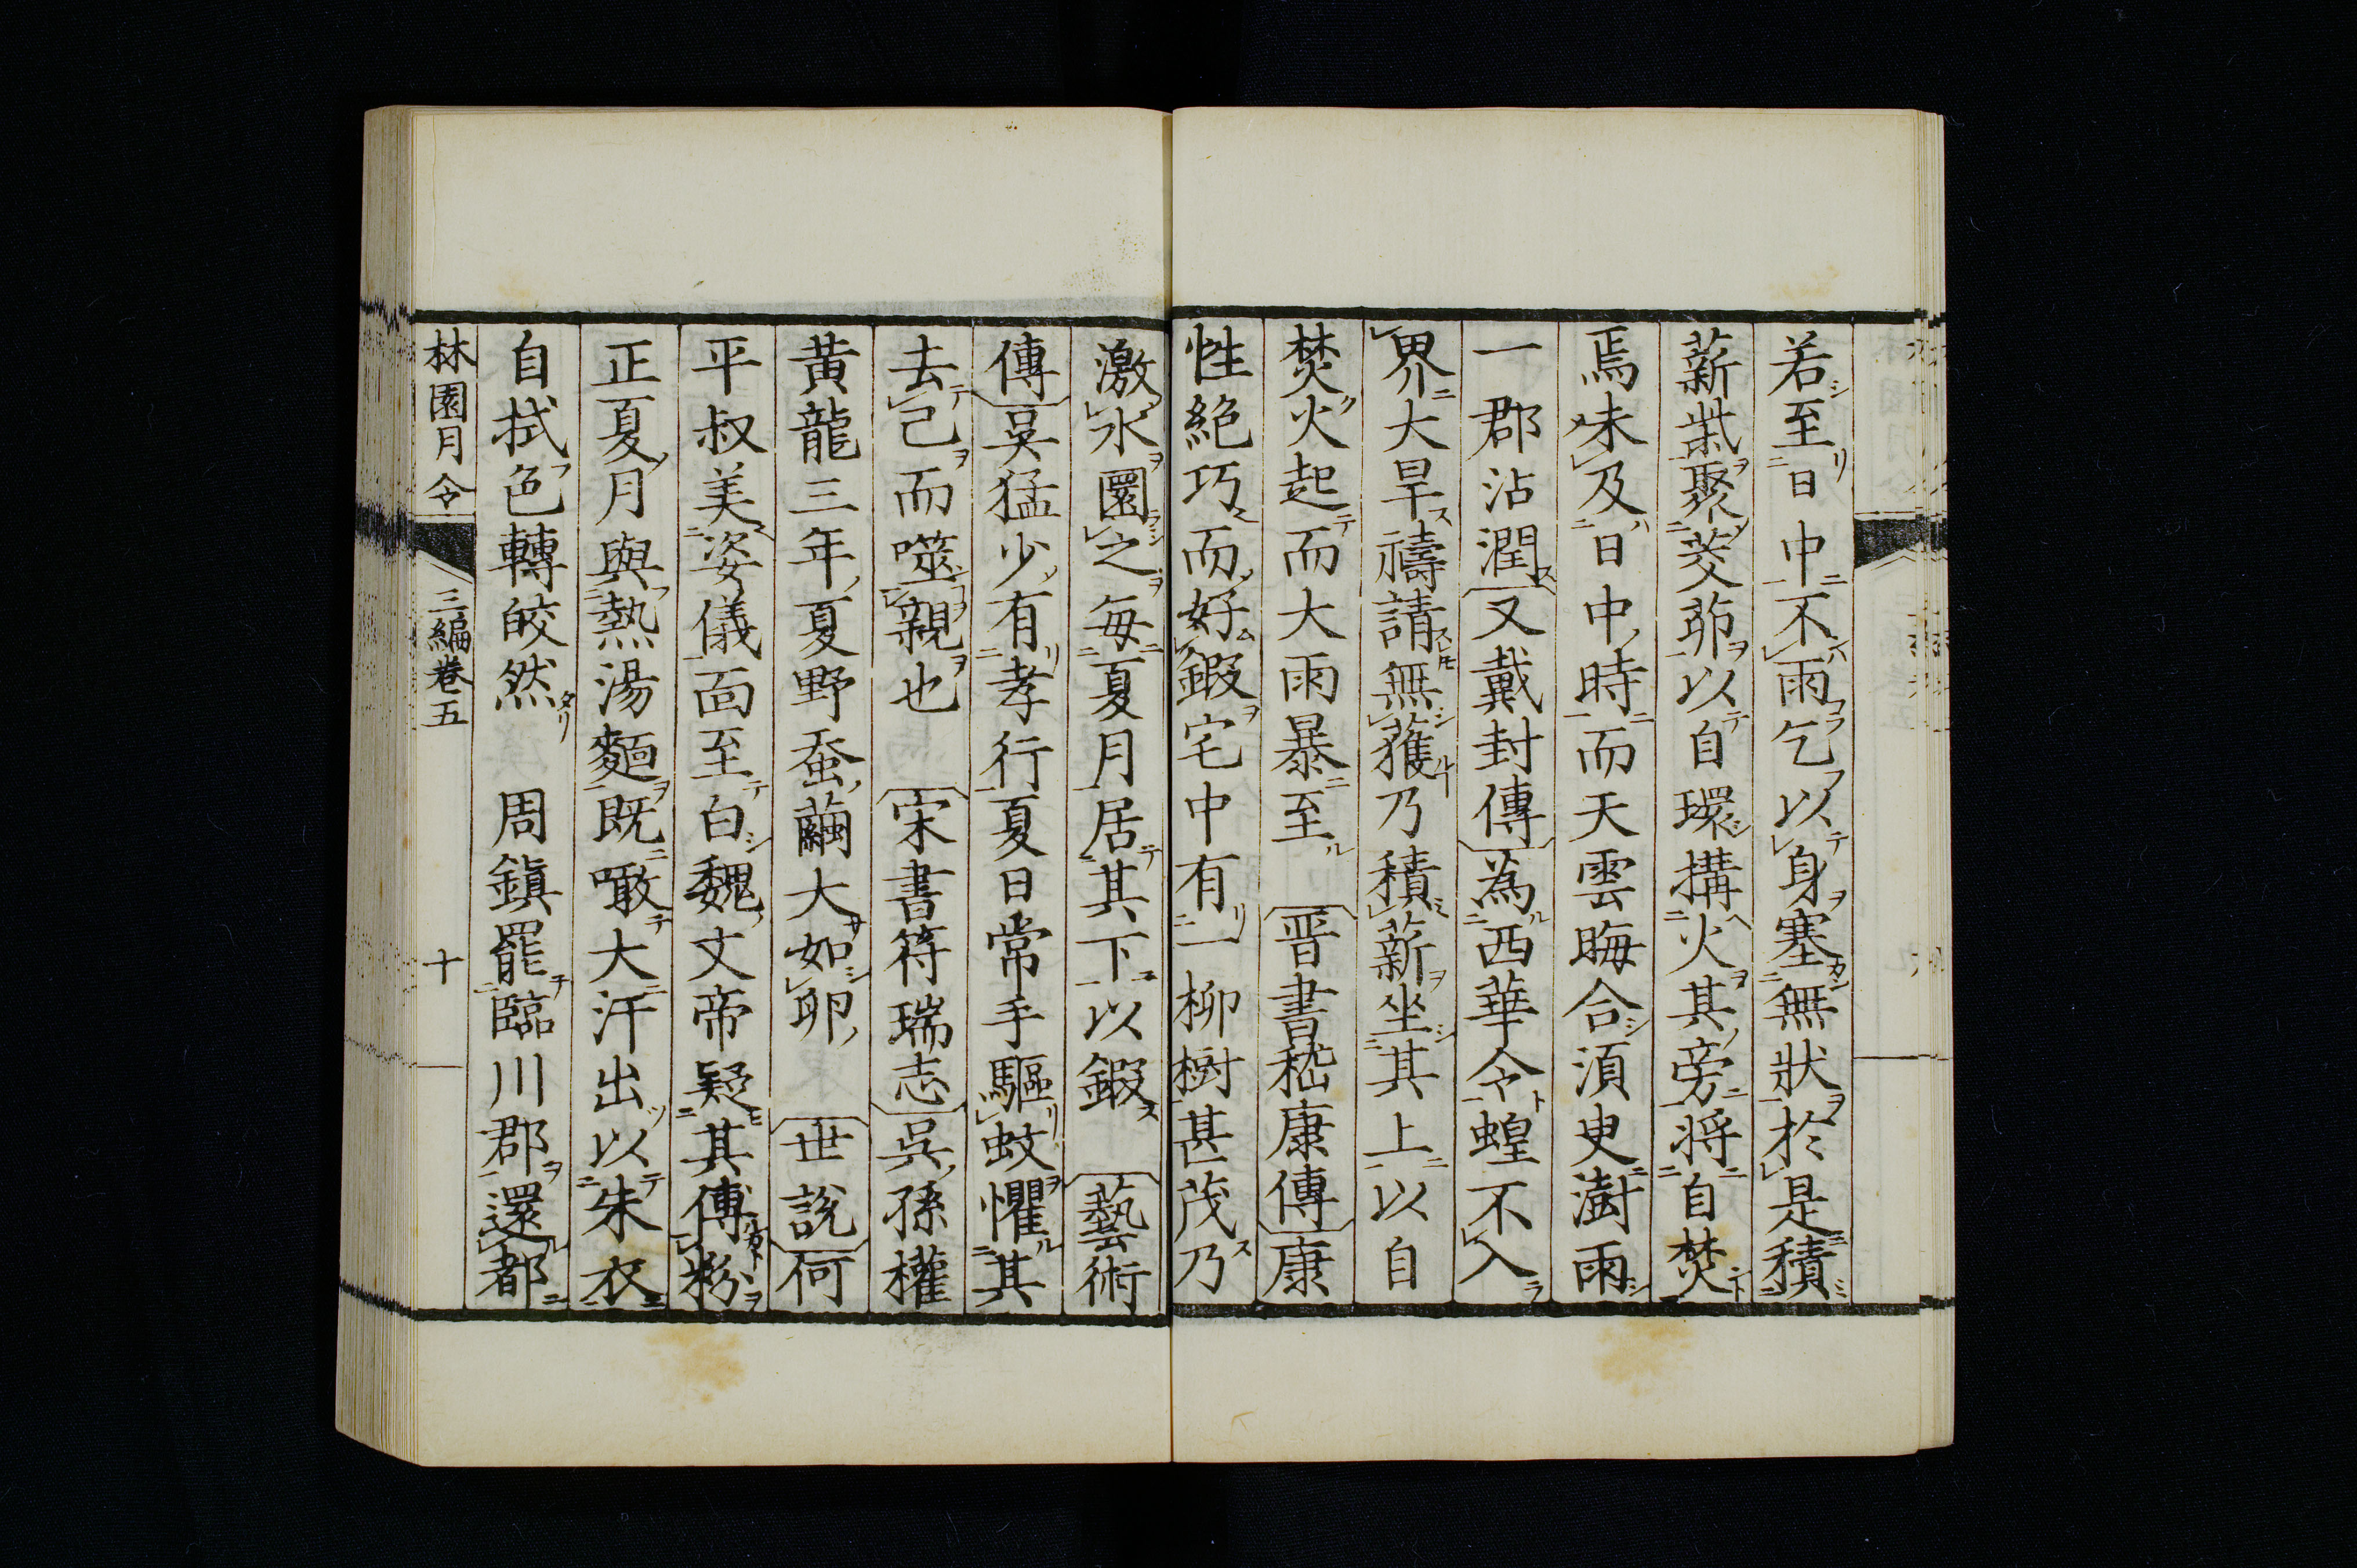 若至日中不雨乞以身塞無狀於是積
薪柴聚茭茆以自環搆火其旁將自焚
焉未及日中時而天雲晦合湏臾澍雨
一郡沾潤又戴封傳為西華令蝗不入
界大旱禱請無獲乃積薪坐其上以自
焚火起而大雨暴至　晉書嵇康傳康
性絕巧而好鍜宅中有一柳樹甚茂乃
激水圜之每夏月居其下以鍜　藝術
傳吳猛少有孝行夏日常手驅蚊懼其
去己而噬親也　宋書符瑞志吳孫權
黃龍三年夏野蚕繭大如卵　世說何
平叔美姿儀面至白魏文帝疑其傅粉
正夏月與熱湯麵既噉大汗出以朱衣
自拭色轉皎然　周鎮罷臨川郡還都
林園月令　三編卷五　十